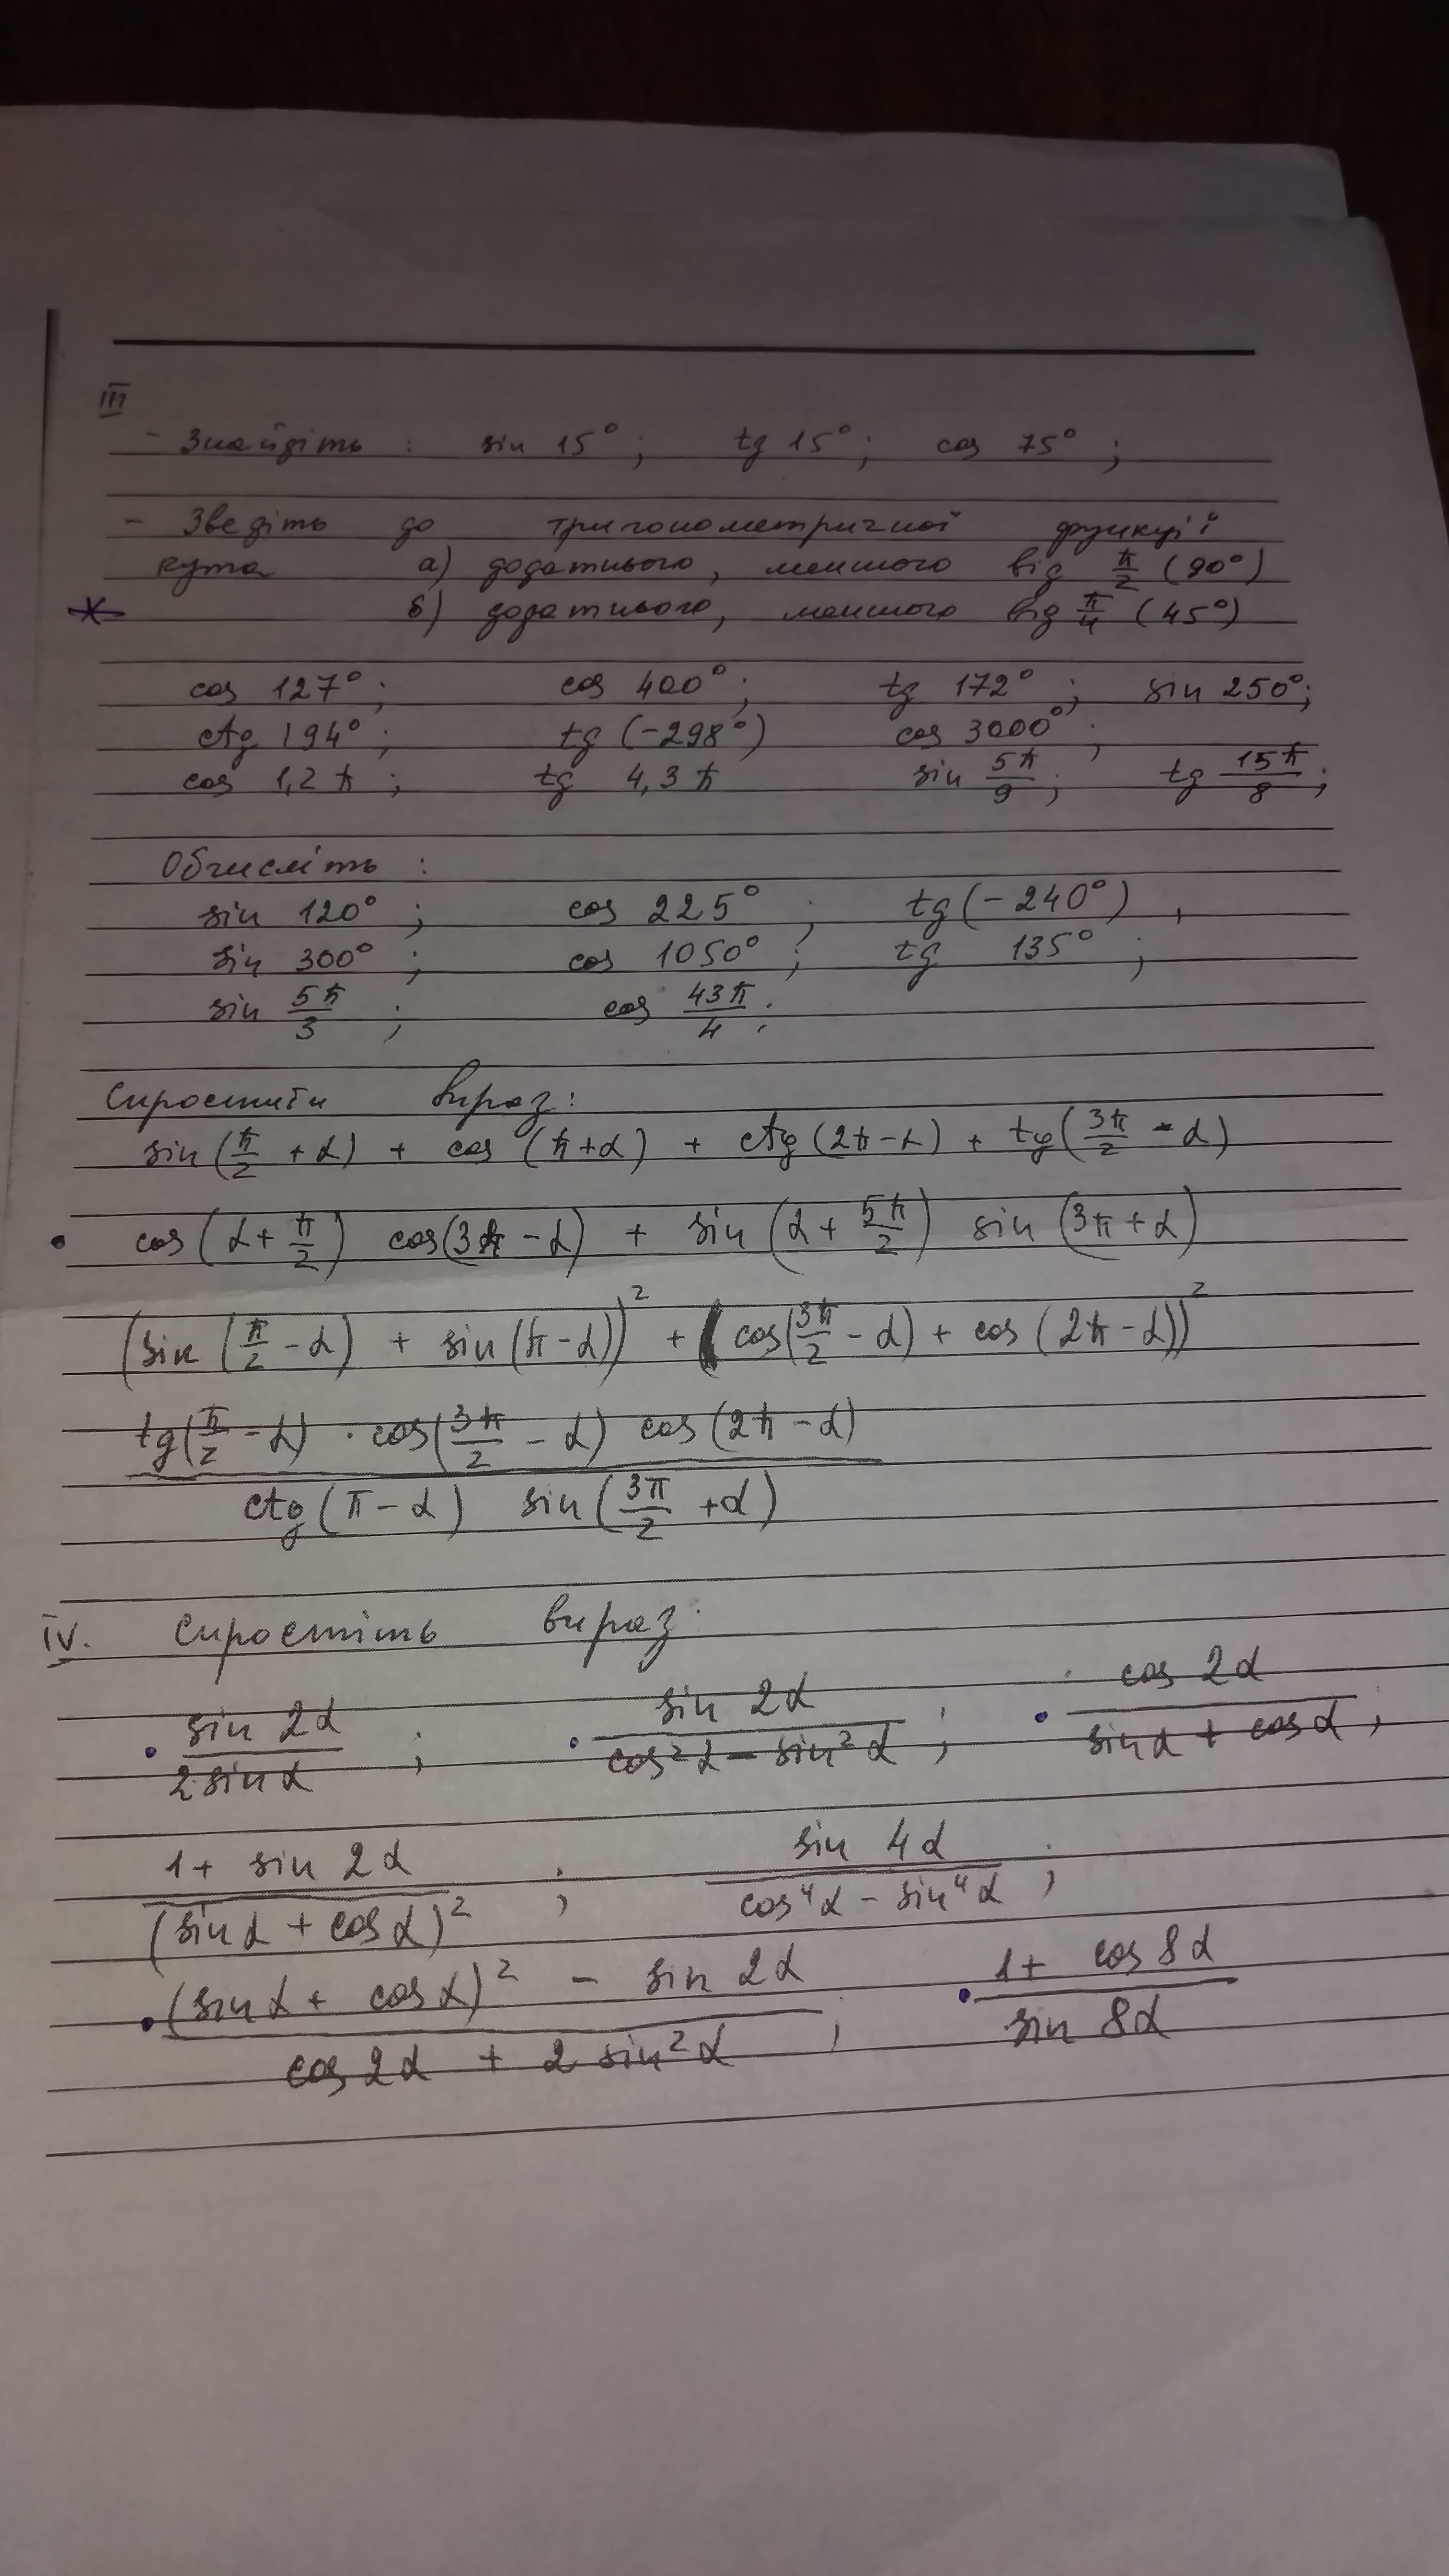 III
- Знайдіть : sin 15°; tg 15°; cos 75°;
- Зведіть до тригонометричної функції
кута а) додатнього, меншого від π/2 (90°)
* б) додатнього, меншого від π/4 (45°)
cos 127°; cos 400°; tg 172°; sin 250°;
ctg 194°; tg (-298°) cos 3000°;
cos 1,2π; tg 4,3π sin 5π/9; tg 15π/8;
Обчисліть :
sin 120°; cos 225°; tg(-240°),
sin 300°; cos 1050°; tg 135°;
sin 5π/3; cos 43π/4.
Спростити вираз:
sin(π/2 + α) + cos (π+α) + ctg (2π-α) + tg(3π/2 - α)
• cos(α + π/2) cos(3π - α) + sin (α + 5π/2) sin (3π + α)
(sin (π/2 - α) + sin (π - α))² + (cos(3π/2 - α) + cos (2π - α))²
tg(π/2 - α) · cos(3π/2 - α) cos (2π - α)
ctg (π - α) sin (3π/2 + α)
IV. Спростіть вираз:
• sin 2α / 2 sin α; • sin 2α / cos²α - sin²α; • cos 2α / sin α + cos α;
1 + sin 2α / (sin α + cos α)²; sin 4α / cos⁴α - sin⁴α;
• (sin α + cos α)² - sin 2α / cos 2α + 2 sin²α; • 1 + cos 8α / sin 8α